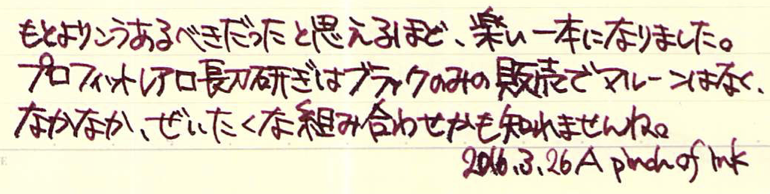 もとよりこうあるべきだったと思えるほど、楽しい一本になりました。
プロフィットレアロ長刀研ぎはブラックのみの販売でマルーンはなく、
なかなか、ぜいたくな組み合わせかも知れませんね。
2016.3.26 A pinch of Ink